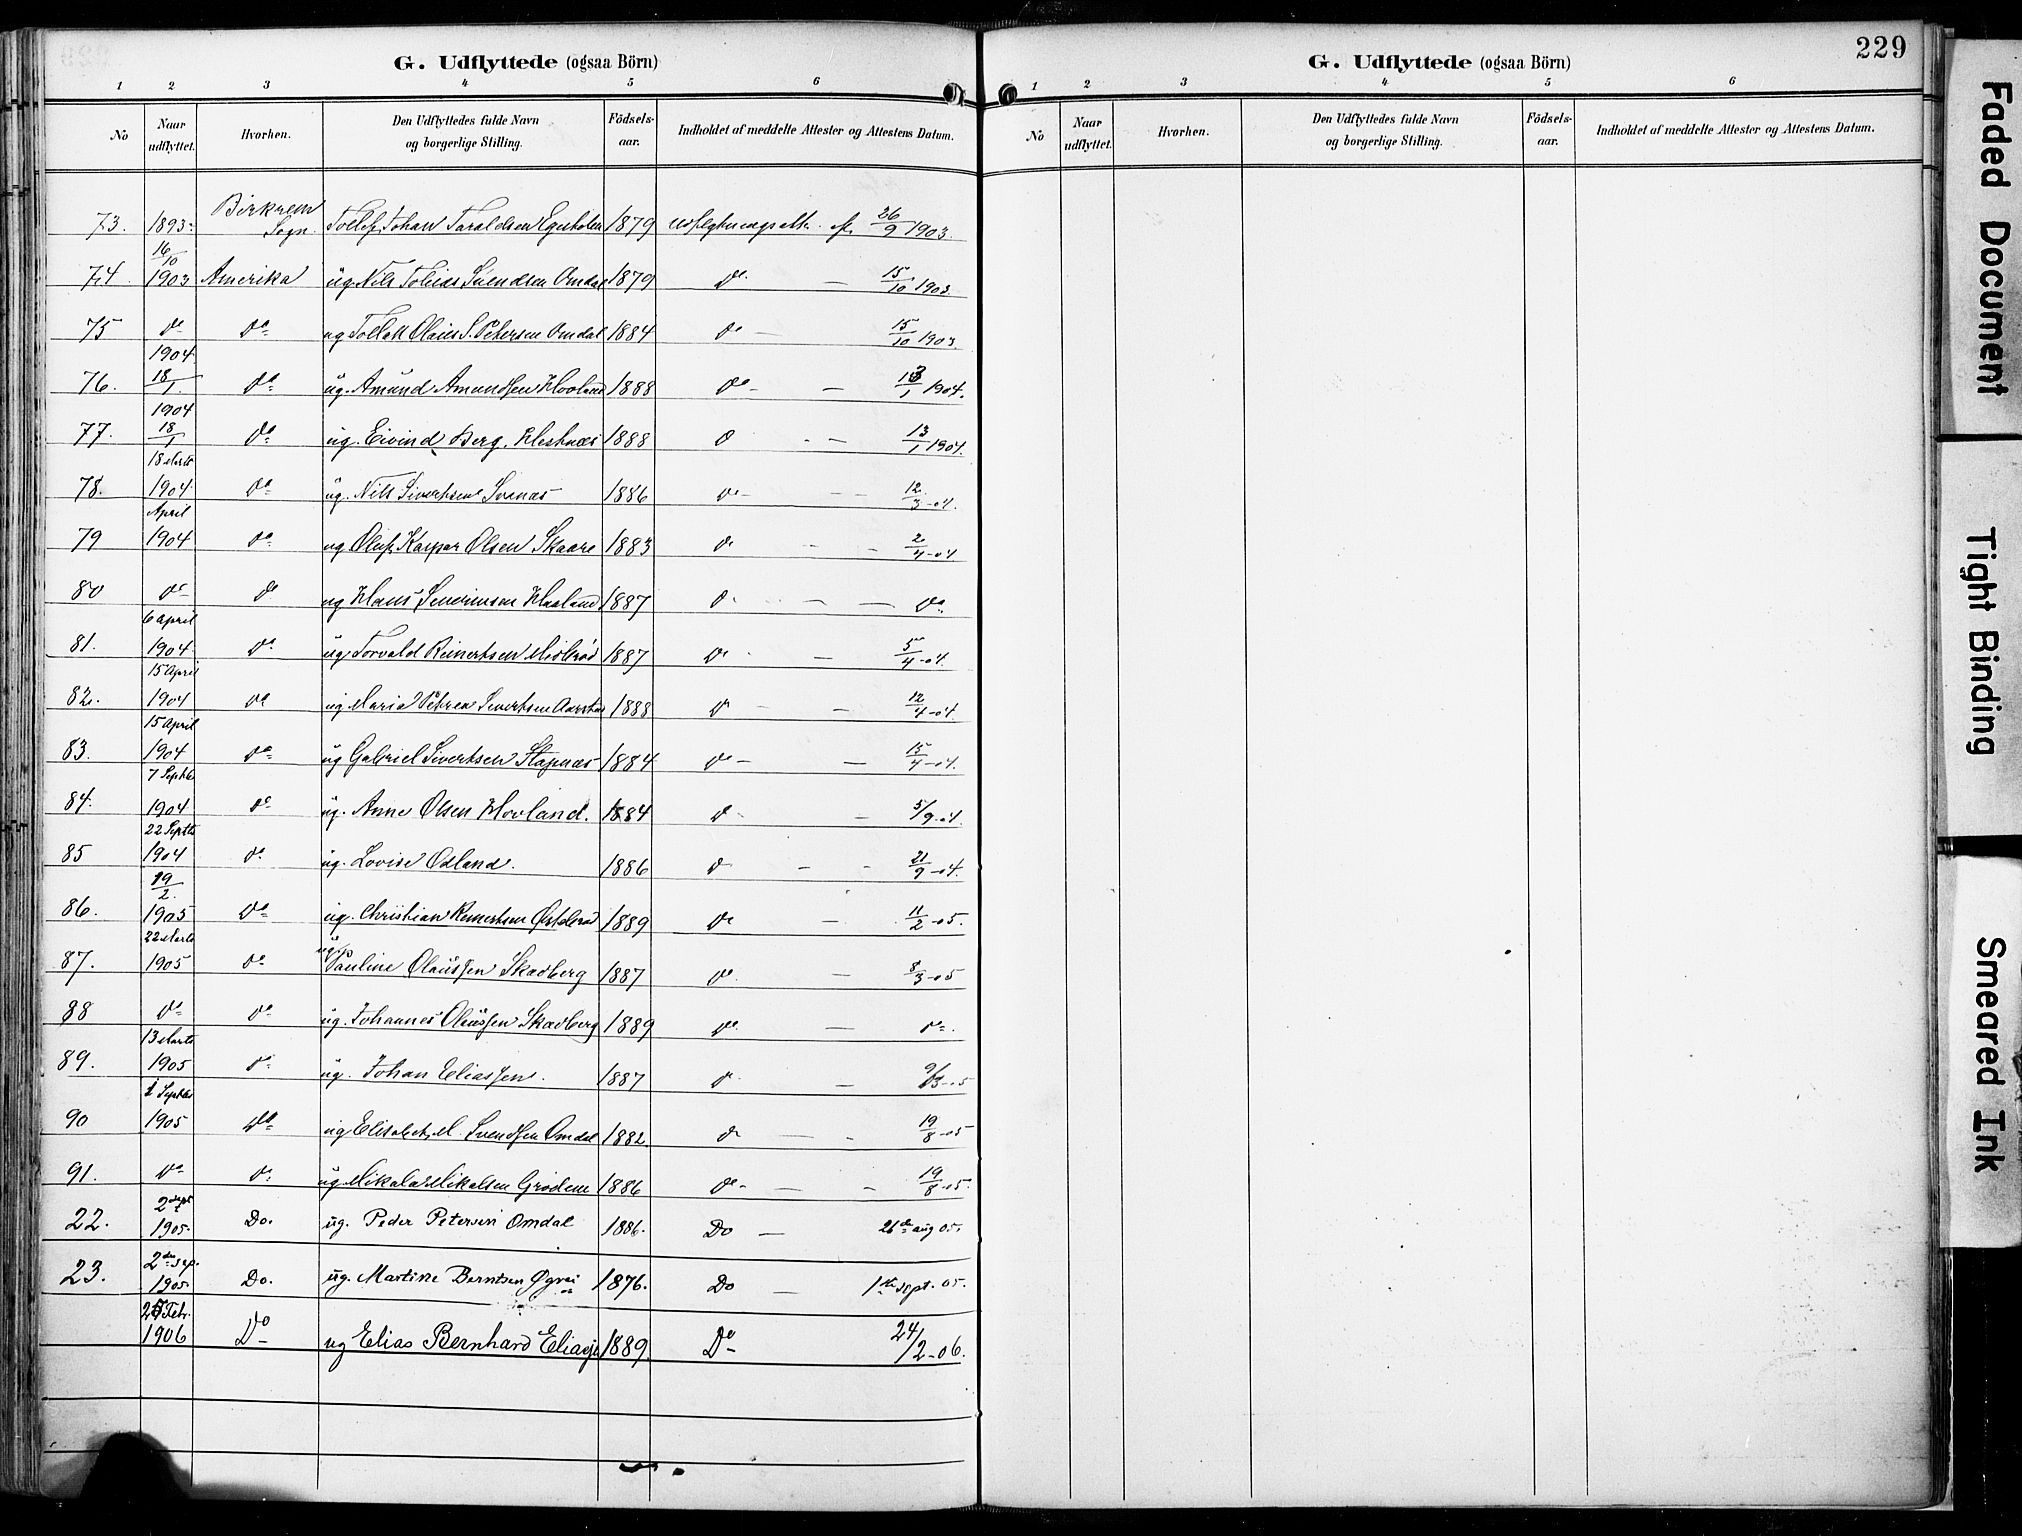 G. Udflyttede (ogsaa Börn)
1 2 3 4 5 6
No Naar udflyttet. Hvorhen. Den Udflyttedes fulde Navn og borgerlige Stilling. Födsels-aar. Indholdet af meddelte Attester og Attestens Datum.
73. 1893. Birkrem Sogn. Tollef Johan Taraldsen 1879 26/9 1903.
74. 16/10 1903 Amerika ug. Nils Tobias Svendsen Omdal 1879 Do. — 15/10 1903.
75 Do Do ug Tollak Olaus S. Petersen Omdal 1884 Do — 15/10 1903.
76. 1904 18/1 Do ug. Amund Amundsen Hovland 1888 Do — — 13/1 1904.
77. 1904 18/1 Do ug. Eivind Berg, Hestnæs 1888 D — 13/1 1904.
78. 18 Marts 1904 Do ug. Nils Sivertsen Svanæs 1886 Do — 12/3-04.
79 April 1904 Do ug Oluf Kaspar Olsen Skaare 1883 Do — 2/4-04
80 Do Do ug Hans Severinsen Haaland 1887 D. — — Do
81. 6 april 1904 Do ug. Torvald Reinertsen Midbrød 1887 Do — 5/4-04.
82. 15 April 1904 Do ug Maria Petrea Sivertsen 1888 D — 12/4-04.
83. 15 April 1904 Do ug Gabriel Sivertsen Stapnæs 1884 Do — — 15/4-04.
84. 7 Septbr 1904 Do ug. Anne Olsen Hovland. 1884 D — 5/9-04.
85 22 Septbr 1904 Do ug. Lovise Odland. 1886 D — — 21/9-04.
86. 19/2. 1905 Do ug. Christian Reinertsen Østebrød 1889 Do — 11/2-05.
87. 22 Marts 1905 Do ug. Pauline Olaussen Skadberg 1887 Do — 8/3-05
88 Do Do ug. Johannes Olaussen Skadberg 1889 Do — Do.
89. 13 Marts 1905 Do ug. Johan Eliassen. 1887 D — 9/3-05
90 1 Septbr 1905 Do ug Elisabet M. Svendsen Omdal 1882. D — 19/8-05
91. Do Do ug Mikal Mikalsen Grødem 1886 Do — — 19/8-05.
22. 2den sept 1905. Do. ug. Peder Petersen Omdal 1886. Do — 26de aug 05.
23. 2den sep. 1905. Do. ug. Martine Berntsen Øgrei 1876. Do — 1ste sept. 05.
25 Febr. 1906 Do ug Elias Bernhard Eliass 1889. Do 24/2-06.
229
G. Udflyttede (ogsaa Börn)
1 2 3 4 5 6
No Naar udflyttet. Hvorhen. Den Udflyttedes fulde Navn og borgerlige Stilling. Födsels-aar. Indholdet af meddelte Attester og Attestens Datum.
Faded Document
Tight Binding
Smeared Ink